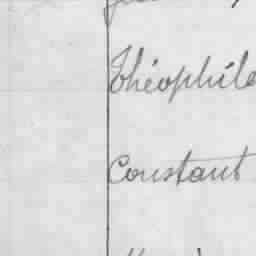 Théophile
Constant